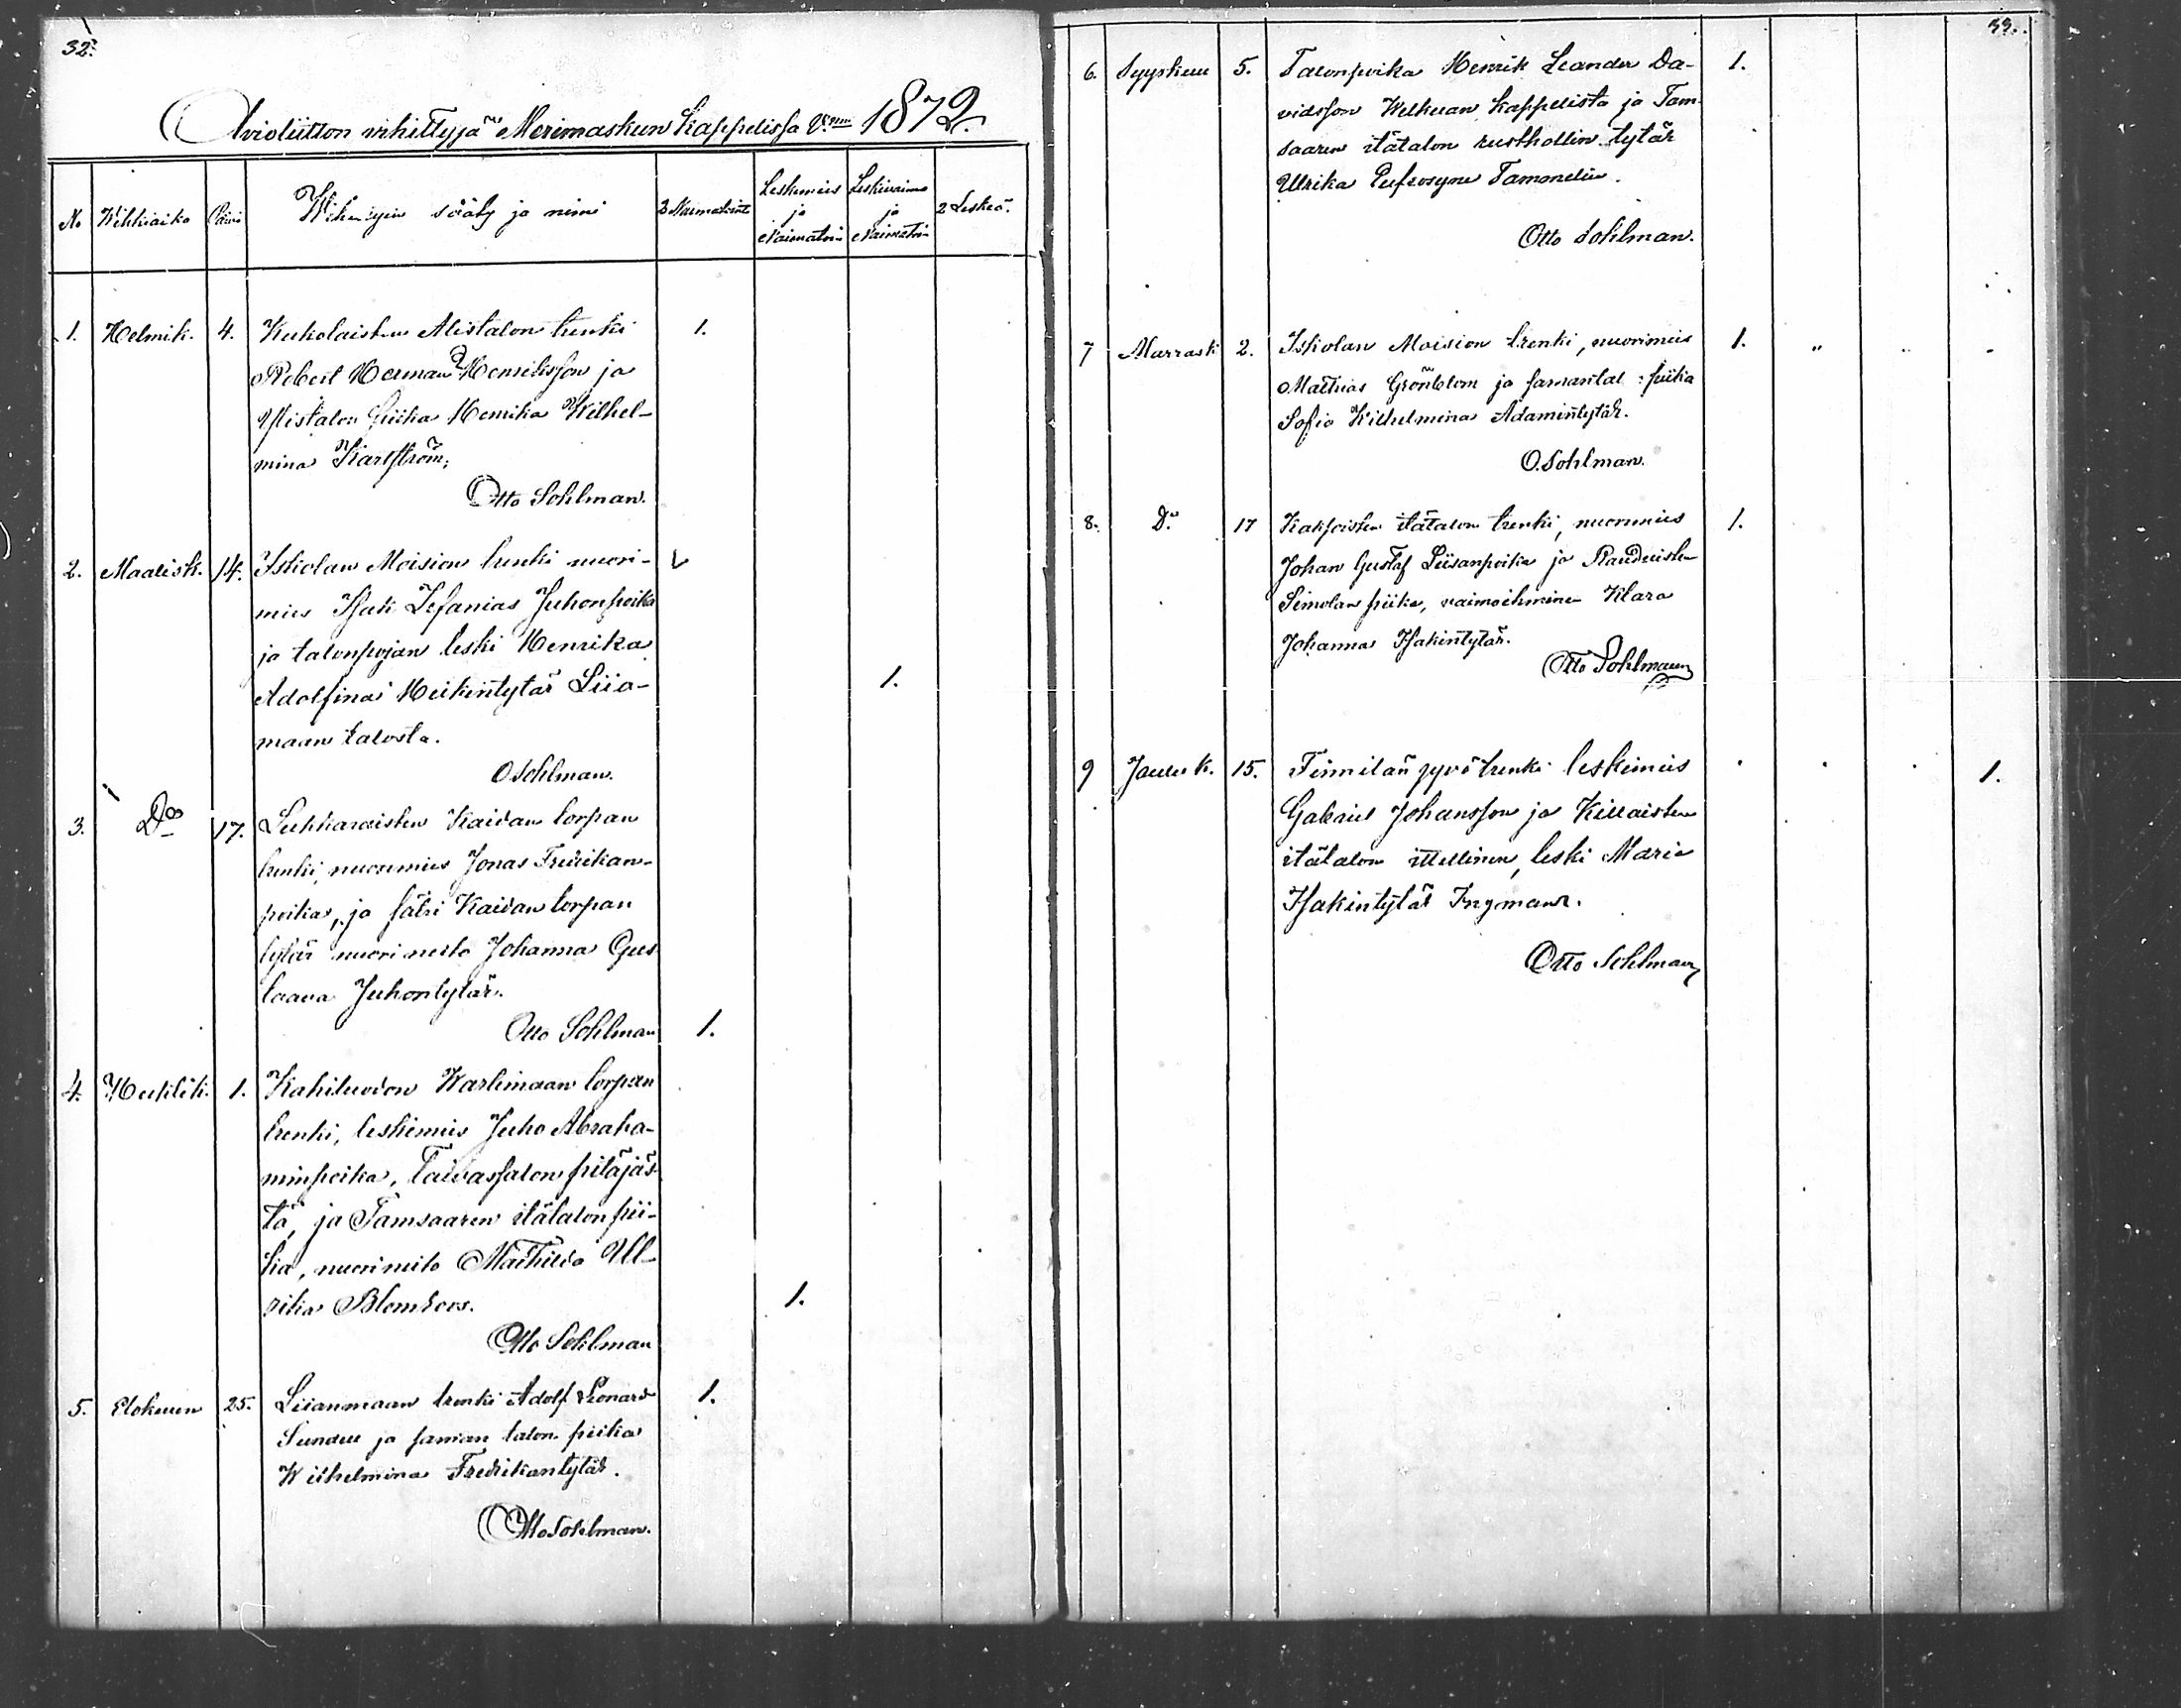 32.
Avioliitton vihittyjä Merimaskun Kappelissa v. 1872.
No Wihkiaika Päivä Wihittyin sääty ja nimi 2 Naimatointa Leskimies ja Naimatoin Leskivaimo ja Naimatoin 2 Leskeä.
1. Helmik. 4. Kukolaisten Alistalon trenki 1.
Robert Herman Henriksson ja
Ylistalon piika Henrika Wilhel-
mina Karlström;
Otto Sohlman.
2. Maalisk. 14. Iskolan Moision trenki nuori-
mies Isak Sefanias Juhonpoika
ja talonpojan leski Henrika
Adolfina Heikintytär Liia- 1.
maan talosta.
O Sohlman.
3. Do 17. Luhkaraisten Kaidan torpan
trenki, nuorimies Jonas Fredrikan-
poika, ja Kaidan torpan
tytär nuori neito Johanna Gus
taava Juhontytär.
Otto Sohlman 1.
4. Huhtik. 1. Kahiluodon Karlimaan torpan
trenki, leskimies Juho Abraha-
minpoika, Taivassalon pitäjäs-
tä, ja Tamsaaren itätalon pii-
ka, nuori neito Mathilda Ul-
rika Blomroos. 1.
Otto Sohlman
5. Elokuun 25. Liianmaan trenki Adolf Leonard 1.
ja saman talon piika
Wilhelmina Fredrikantytär.
Otto Sohlman.
33.
6. Syyskuu 5. Talonpoika Henrik Leander Da- 1.
vidsson Welkuan Kappelista ja Tam-
saaren itätalon rusthollin tytär
Ulrika Eufrosyne Tamenelin.
Otto Sohlman.
7 Marrask 2. Iskolan Moision trenki, nuorimies 1. " " "
Mathias Grönblom ja samantal: piika
Sofia Wilhelmina Adamintytär.
O. Sohlman.
8. Do 17 Kaksoisten itätalon trenki, nuorimies 1.
Johan Gustaf Liisanpoika ja
Simolan piika, vaimoihminen Klara
Johanna Isakintytär.
Otto Sohlman
9 Jouluk. 15. Finnilän pyvö trenki leskimies 1.
Gabriel Johansson ja Killaisten
itätalon ittellinen, leski Maria
Isakintytär Ingman.
Otto Sohlman